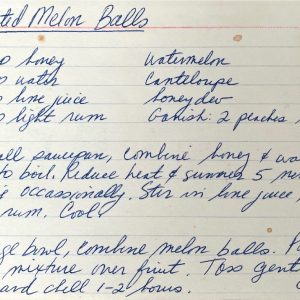 ted Melon Balls
honey watermelon
water Canteloupe
lime juice honeydew
light rum Garnish: 2 peaches
all saucepan, combine honey & wa
to boil. Reduce heat & simmer 5 min
g occassionally. Stir in lime juice,
rum. Cool.
ge bowl, combine melon balls. P
mixture over fruit. Toss gent
and chill 1-2 hours.